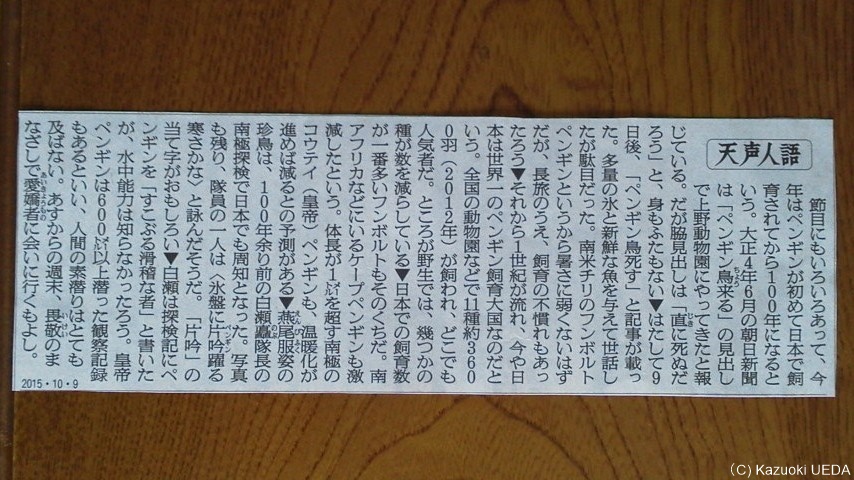 天声人語
節目にもいろいろあって、今
年はペンギンが初めて日本で飼
育されてから100年になると
いう。大正4年6月の朝日新聞
は「ペンギン鳥来る」の見出し
で上野動物園にやってきたと報
じている。だが脇見出しは「直に死ぬだ
ろう」と、身もふたもない▼はたして9
日後、「ペンギン鳥死す」と記事が載っ
た。多量の氷と新鮮な魚を与えて世話し
たが駄目だった。南米チリのフンボルト
ペンギンというから暑さに弱くないはず
だが、長旅のうえ、飼育の不慣れもあっ
たろう▼それから1世紀が流れ、今や日
本は世界一のペンギン飼育大国なのだと
いう。全国の動物園などで11種約360
0羽(2012年)が飼われ、どこでも
人気者だ。ところが野生では、幾つかの
種が数を減らしている▼日本での飼育数
が一番多いフンボルトもそのくちだ。南
アフリカなどにいるケープペンギンも激
減したという。体長が1㍍を超す南極の
コウテイ(皇帝)ペンギンも、温暖化が
進めば減るとの予測がある▼燕尾服姿の
珍鳥は、100年余り前の白瀬矗隊長の
南極探検で日本でも周知となった。写真
も残り、隊員の一人は〈氷盤に片吟躍る
寒さかな〉と詠んだそうだ。「片吟」の
当て字がおもしろい▼白瀬は探検記にペ
ンギンを「すこぶる滑稽な者」と書いた
が、水中能力は知らなかったろう。皇帝
ペンギンは600㍍以上潜った観察記録
もあるといい、人間の素潜りはとても
及ばない。あすからの週末、畏敬のま
なざしで愛嬌者に会いに行くもよし。
2015・10・9
(C) Kazuoki UEDA